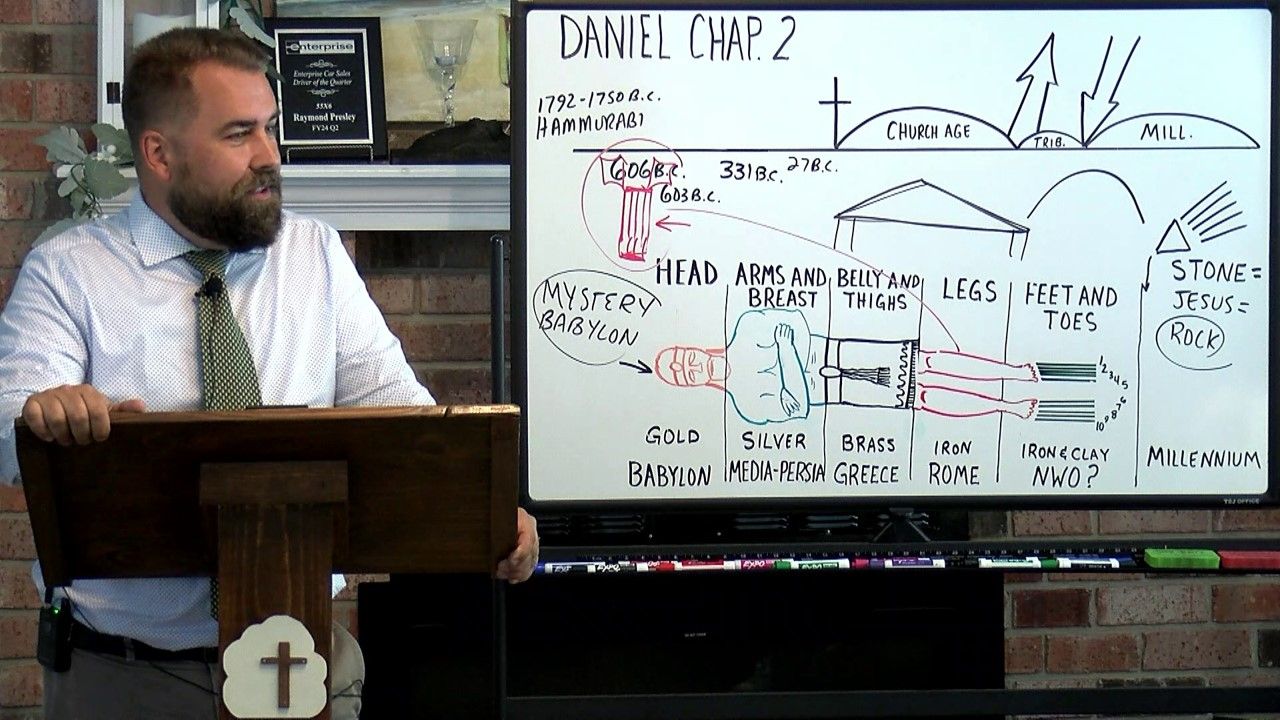 enterprise
Enterprise Car Sales
Driver of the Quarter
55X6
Raymond Presley
FY24 Q2
DANIEL CHAP. 2
1792-1750 B.C.
HAMMURABI
CHURCH AGE
TRIB.
MILL.
606 B.C.
331 B.C.
27 B.C.
603 B.C.
HEAD
ARMS AND
BREAST
BELLY AND
THIGHS
LEGS
FEET AND
TOES
STONE =
JESUS =
ROCK
MYSTERY
BABYLON
1 2 3 4 5
10 9 8 7 6
GOLD
SILVER
BRASS
IRON
IRON & CLAY
BABYLON
MEDIA-PERSIA
GREECE
ROME
NWO?
MILLENNIUM
EXPO
EXPO